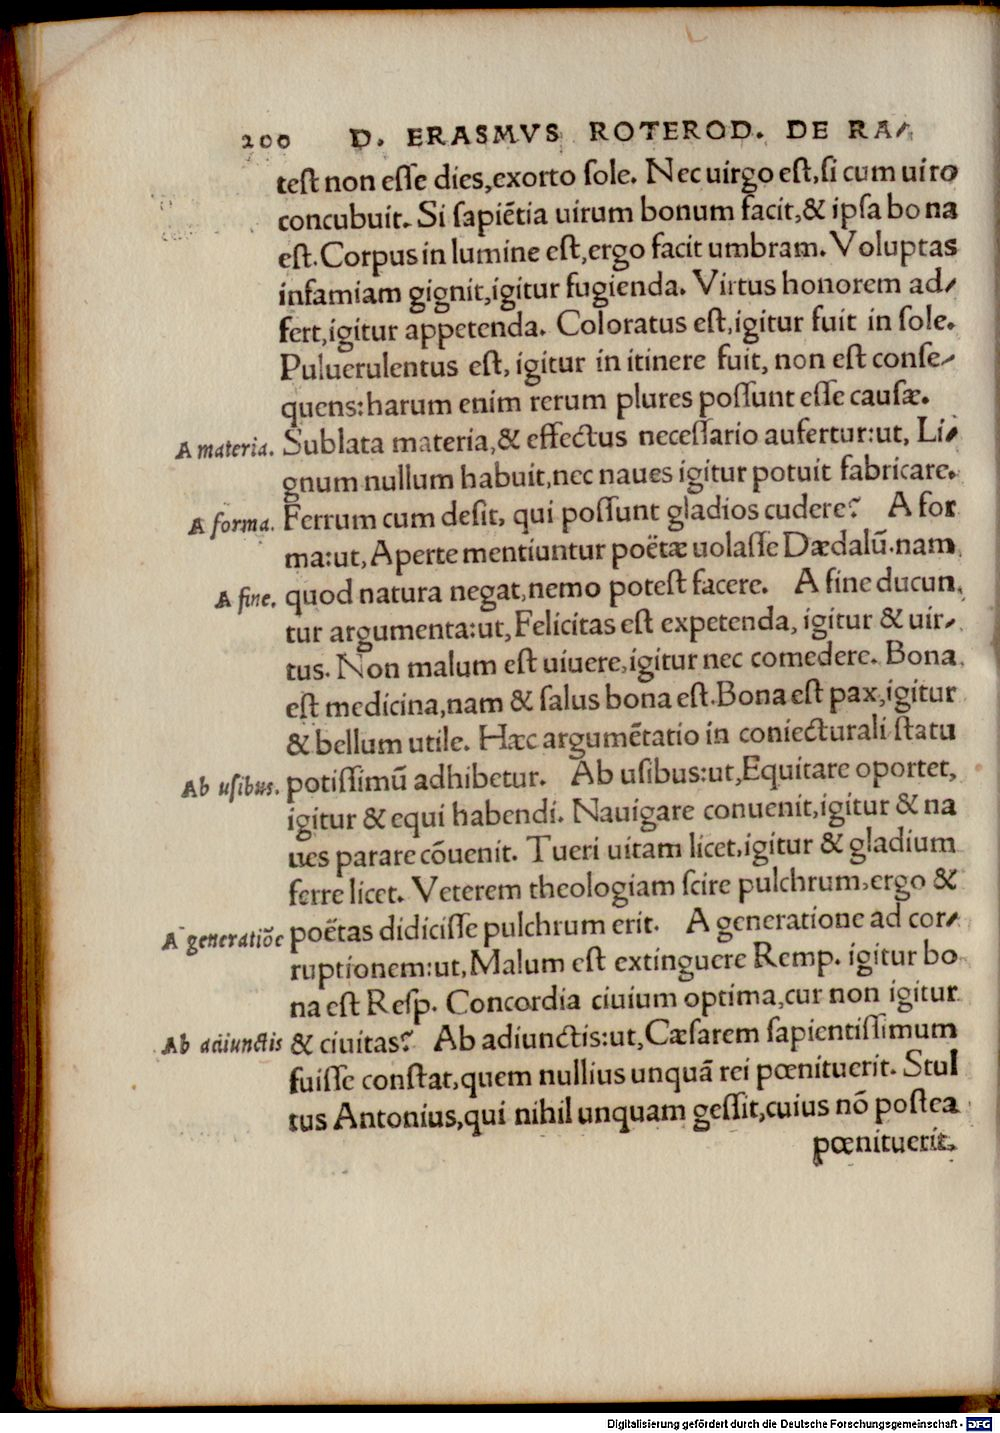 200 D. ERASMVS ROTEROD. DE RA-
test non esse dies, exorto sole. Nec uirgo est, si cum uiro
concubuit. Si sapiētia uirum bonum facit, & ipsa bona
est. Corpus in lumine est, ergo facit umbram. Voluptas
infamiam gignit, igitur fugienda. Virtus honorem ad-
fert, igitur appetenda. Coloratus est, igitur fuit in sole.
Puluerulentus est, igitur in itinere fuit, non est conse-
quens: harum enim rerum plures possunt esse causæ.
A materia. Sublata materia, & effectus necessario aufertur: ut, Li-
gnum nullum habuit, nec naues igitur potuit fabricare.
A forma. Ferrum cum desit, qui possunt gladios cudere? A for
ma: ut, Aperte mentiuntur poëtæ uolasse Dædalū. nam
A fine. quod natura negat, nemo potest facere. A fine ducun
tur argumenta: ut, Felicitas est expetenda, igitur & uir-
tus. Non malum est uiuere, igitur nec comedere. Bona
est medicina, nam & salus bona est. Bona est pax, igitur
& bellum utile. Hæc argumētatio in coniecturali statu
Ab usibus. potissimū adhibetur. Ab usibus: ut, Equitare oportet,
igitur & equi habendi. Nauigare conuenit, igitur & na
ues parare cōuenit. Tueri uitam licet, igitur & gladium
ferre licet. Veterem theologiam scire pulchrum, ergo &
A generatiōe poëtas didicisse pulchrum erit. A generatione ad cor-
ruptionem: ut, Malum est extinguere Remp. igitur bo
na est Resp. Concordia ciuium optima, cur non igitur
Ab adiunctis & ciuitas? Ab adiunctis: ut, Cæsarem sapientissimum
fuisse constat, quem nullius unquā rei pœnituerit. Stul
tus Antonius, qui nihil unquam gessit, cuius nō postea
pœnituerit.
Digitalisierung gefördert durch die Deutsche Forschungsgemeinschaft - DFG